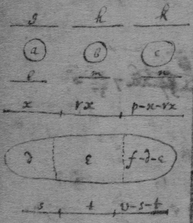 g h k
a b c
l m n
x rx p-x-rx
d e f-d-e
s t v-s-t